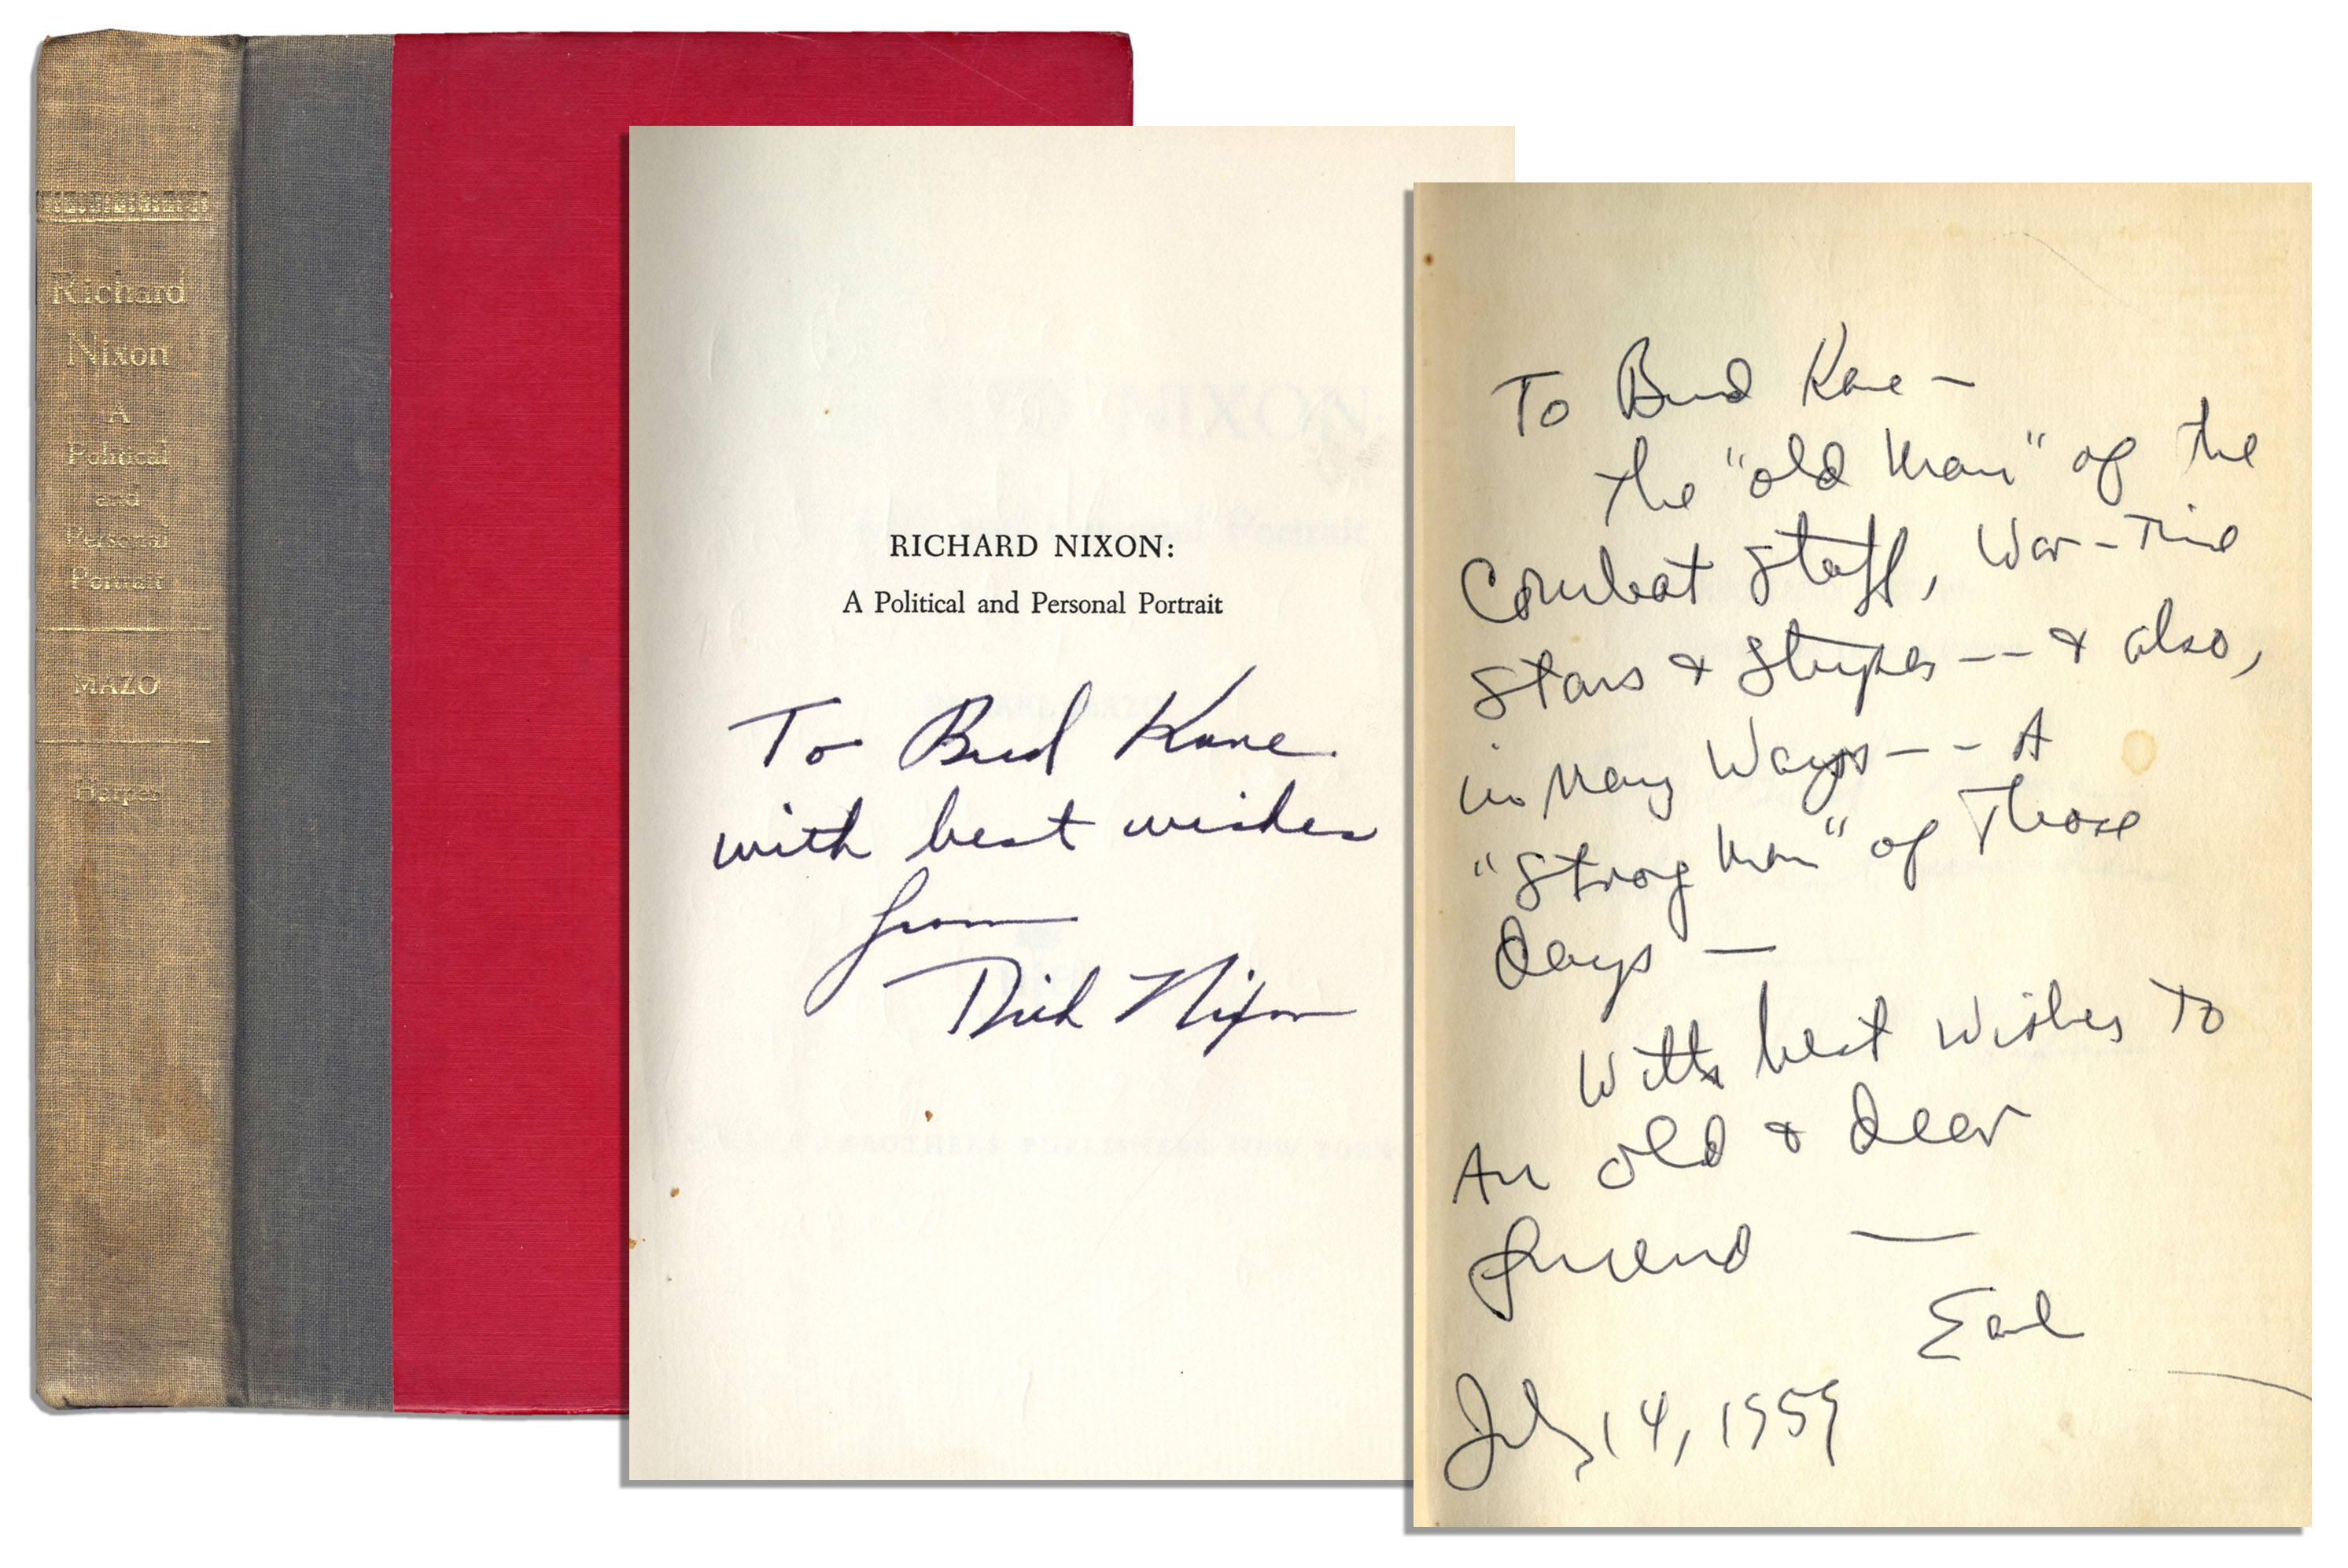 Richard
Nixon
A
Political
and
Personal
Portrait
MAZO
Harper
RICHARD NIXON:
A Political and Personal Portrait
To Bud Kane
with best wishes
from
Dick Nixon
To Bud Kane —
the "old man" of the
Combat Staff, War-Time
Stars & Stripes -- & also,
in Many Ways -- A
"Strog Man" of Those
Days —
With best wishes to
An old & dear
friend —
Earl
July 14, 1959